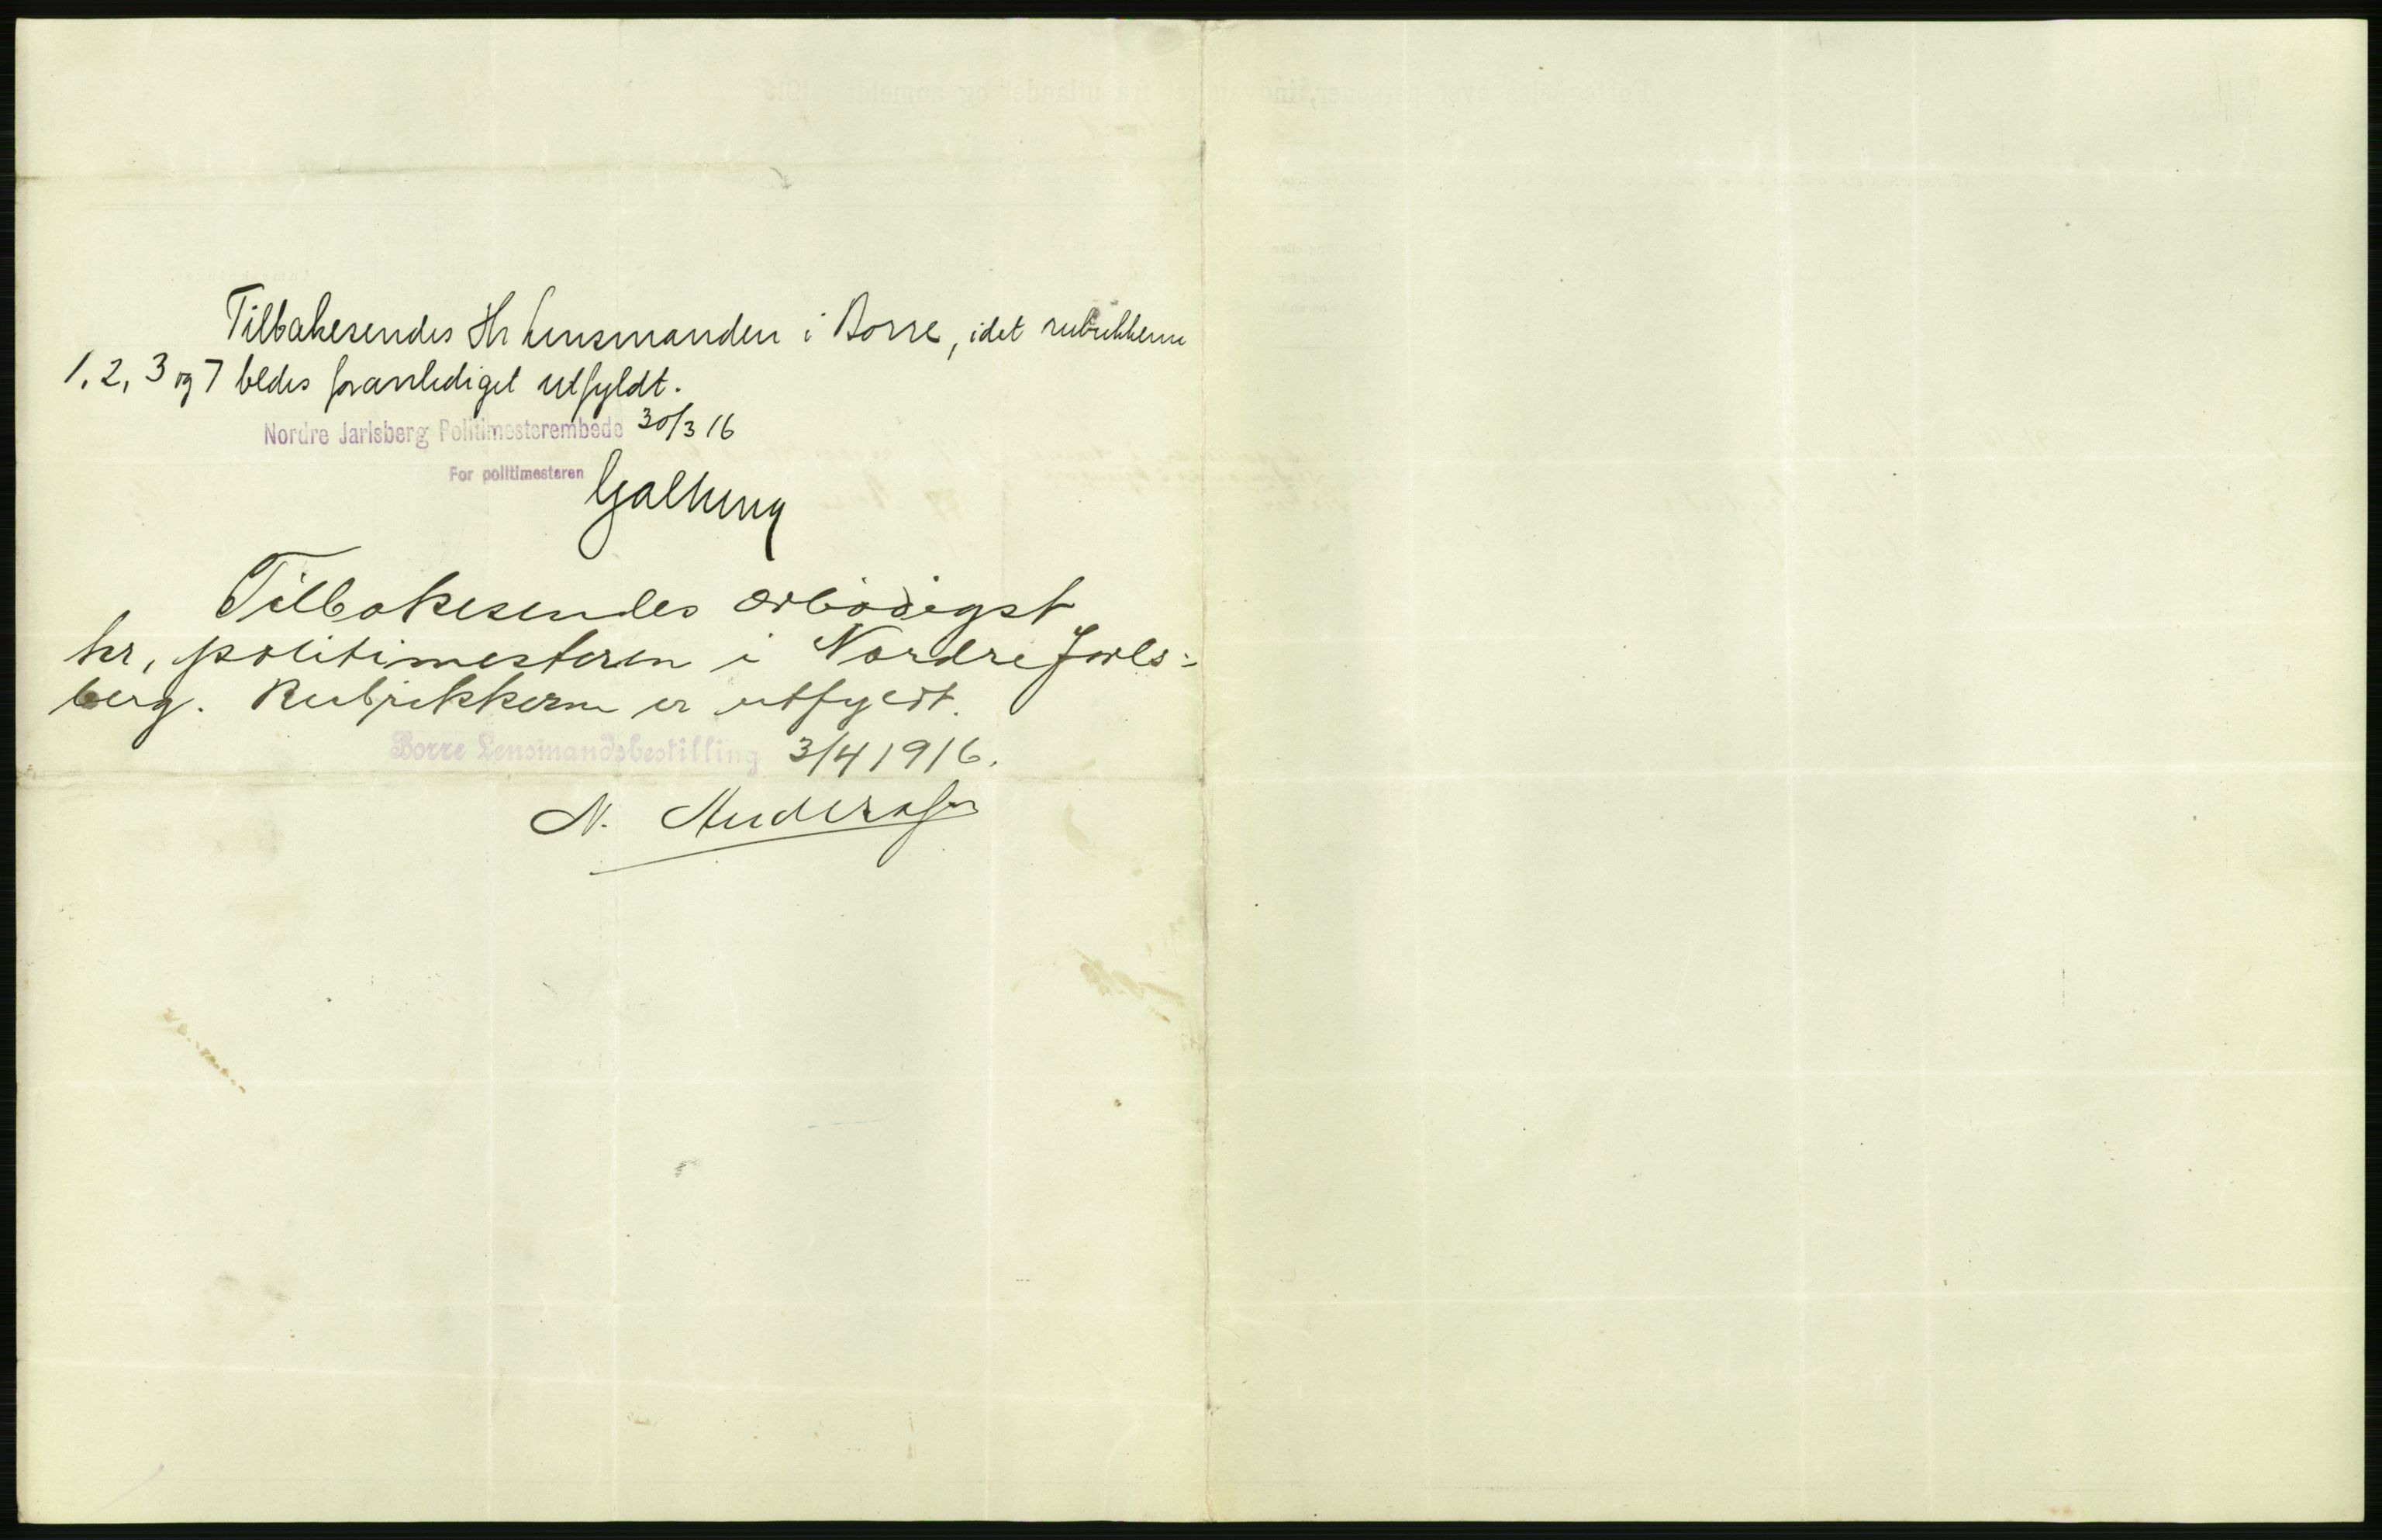 Tilbakesendes Hr Lensmanden i Borre, idet rubrikkerne
1, 2, 3 og 7 bedes foranlediget utfyldt.
Nordre Jarlsberg Politimesterembede 30/3 16
For politimesteren
Galtung
Tilbakesendes ærbødigst
hr, politimesteren i Nordre Jarls=
berg. Rubrikkerne er utfyldt.
Borre Lensmandsbestilling 3/4 1916.
N. Anderssen